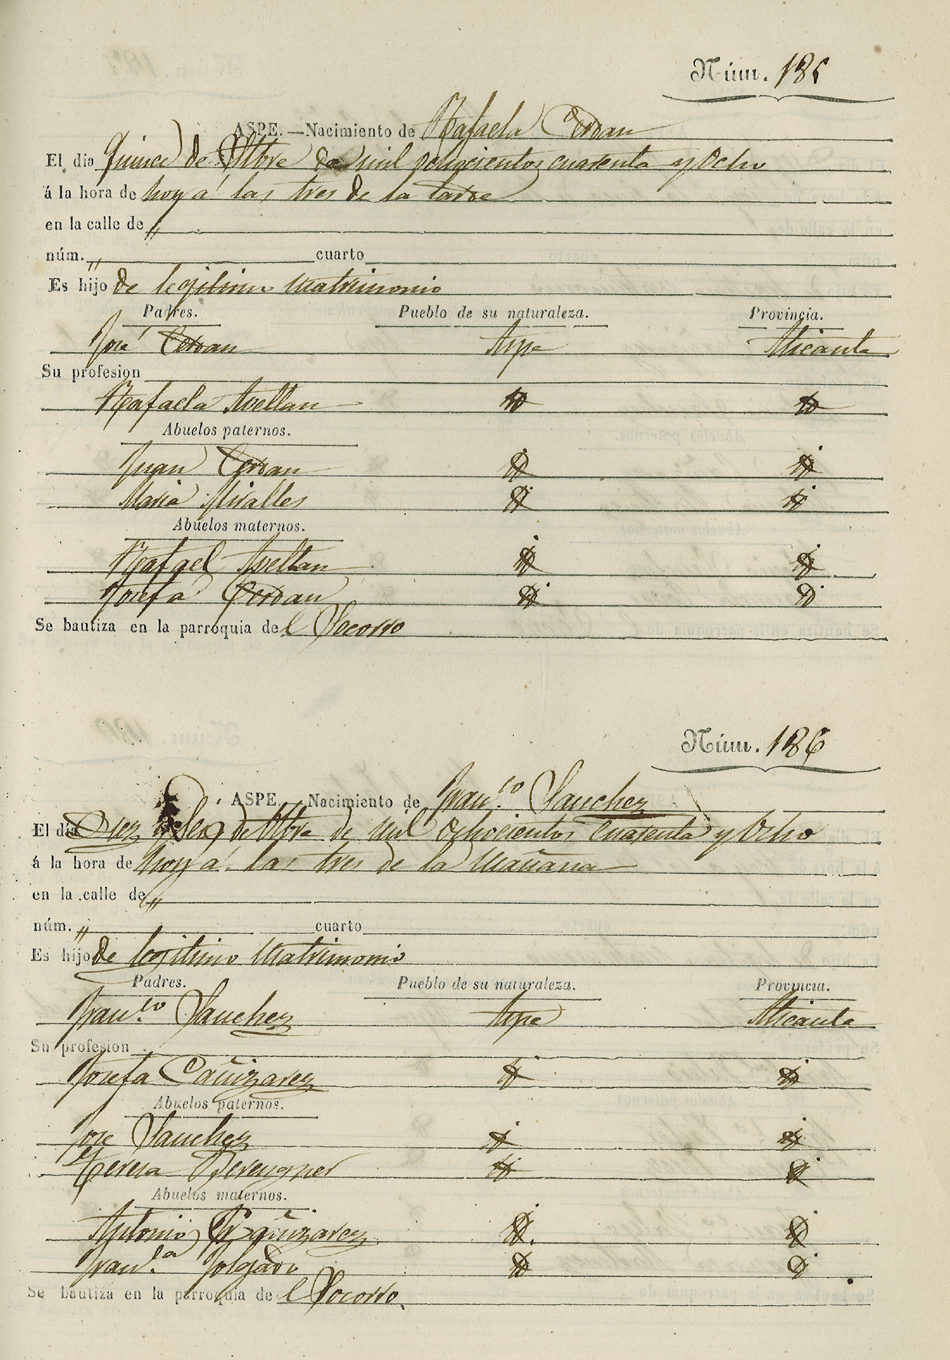 Núm. 185
ASPE.—Nacimiento de Rafaela Cerdan
El dia Quince de Obre de mil ochocientos cuarenta y Ocho
á la hora de hoy á las tres de la tarde
en la calle de "
núm. " cuarto
Es hijo de legitimo Matrimonio
Padres. Pueblo de su naturaleza. Provincia.
José Cerdan Aspe Alicante
Su profesion
Rafaela Avellan
Abuelos paternos.
Juan Cerdan
Maria Miralles
Abuelos maternos.
Rafael Avellan
Josefa Cerdan
Se bautiza en la parroquia del Socorro
Núm. 186
ASPE. Nacimiento de Franco Sanchez
El dia Diez y Seis de Obre de mil Ochocientos Cuarenta y Ocho
á la hora de hoy á las tres de la Mañana
en la calle de "
núm. " cuarto
Es hijo de legitimo Matrimonio
Padres. Pueblo de su naturaleza. Provincia.
Franco Sanchez Aspe Alicante
Su profesion
Josefa Cañizares
Abuelos paternos.
Jose Sanchez
Teresa Berenguer
Abuelos maternos.
Antonio Cañizarez
Franca
Se bautiza en la parroquia de el Socorro.